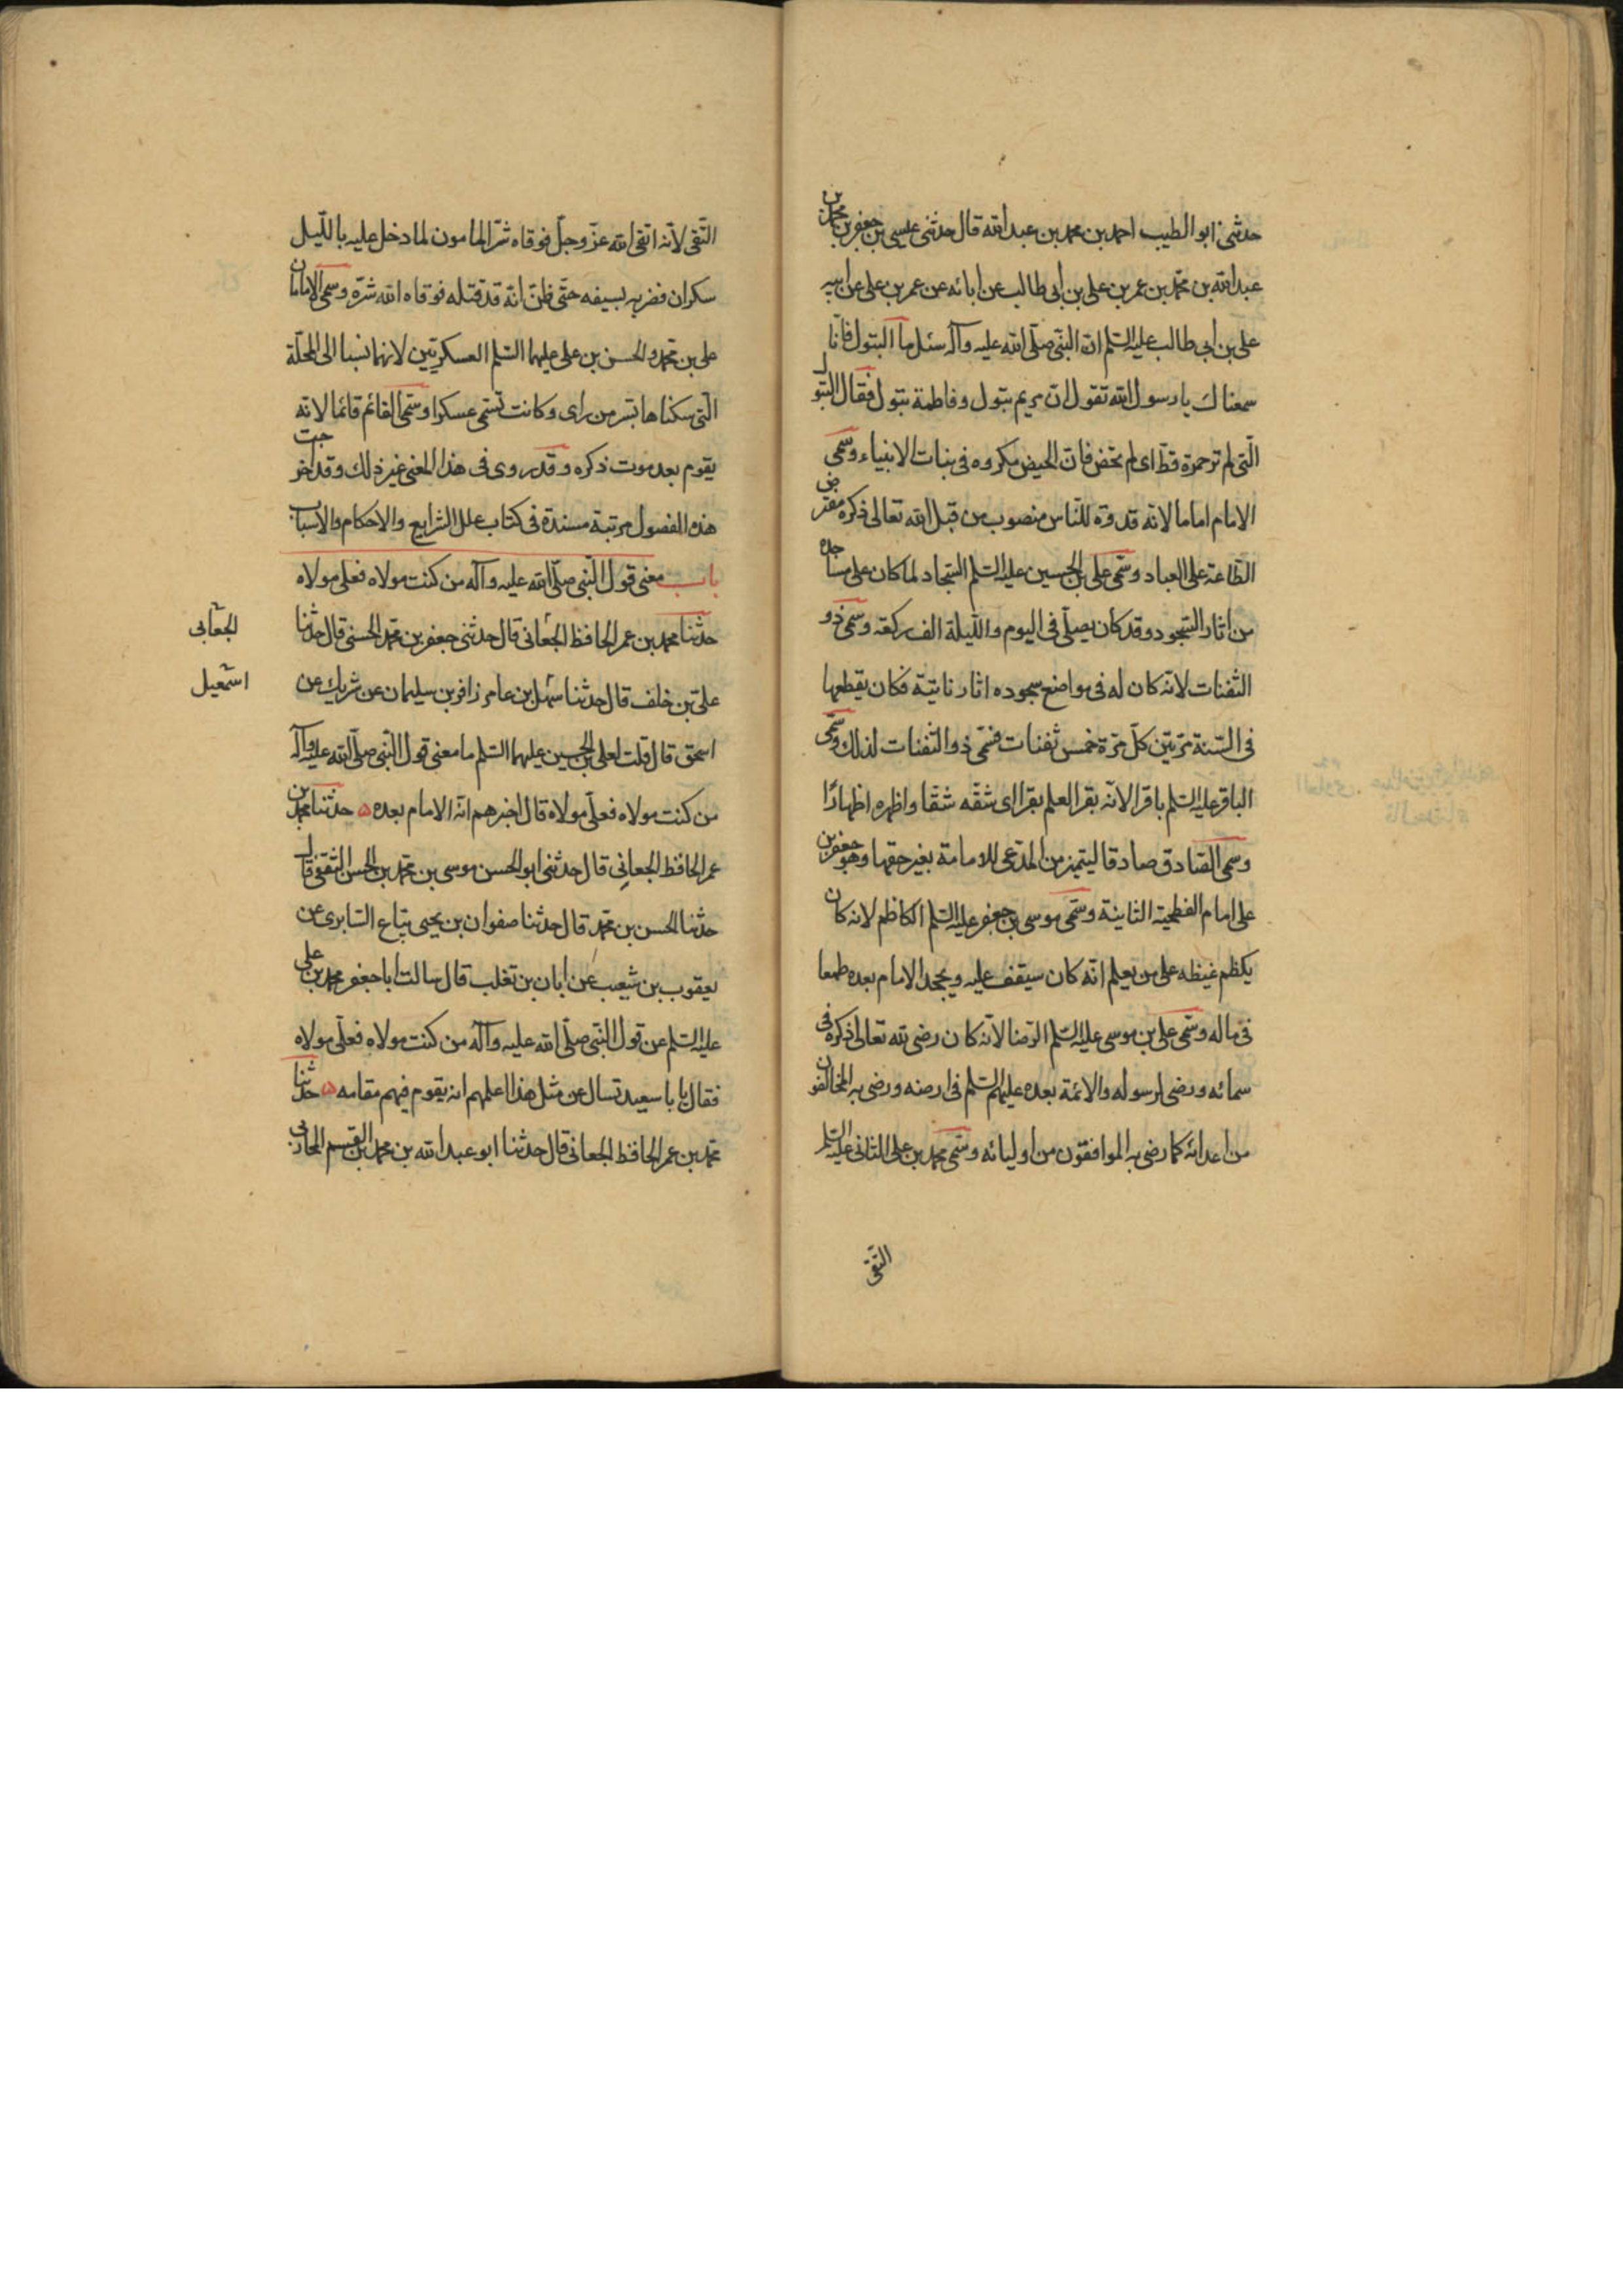 حدثنى ابو الطيب احمد بن محمد بن عبد الله قال حدثنى عيسى بن جعفر بن محمد بن
عبد الله بن محمد بن عمر بن على بن أبى طالب عن ابائه عن عمر بن على عن ابيه
على بن أبى طالب عليه السّلم انّ النّبى صلّى الله عليه وآله سئل ما البتول فانّا
سمعناك يا رسول الله تقول انّ مريم بتول وفاطمة بتول فقال البتول
الّتى لم تر حمرة قطّ اى لم تحض فانّ الحيض مكروه فى بنات الانبياء وسمّى
الامام اماما لانّه قدوة للنّاس منصوب من قبل الله تعالى ذكره مفترض
الطّاعة على العباد وسمّى على بن الحسين عليه السّلم السّجاد لما كان على مساجده
من اثار السّجود وقد كان يصلّى فى اليوم واللّيلة الف ركعة وسمّى ذو
الثفنات لانّه كان له فى مواضع سجوده اثار ناتية فكان يقطعها
فى السّنة مرّتين كلّ مرّة خمس ثفنات فسمّى ذو الثّفنات لذلك وسمّى
الباقر عليه السّلم باقرا لانّه بقر العلم بقرا اى شقّه شقّا واظهره اظهارًا
وسمّى الصّادق صادقا ليتميز من المدّعى للامامة بغير حقها وهو جعفر بن
على امام الفطحيّة الثانية وسمّى موسى بن جعفر عليه السّلم الكاظم لانّه كان
يكظم غيظه على من يعلم انّه كان سيقف عليه ويجحد الامام بعده طمعا
فى ماله وسمّى على بن موسى عليه السّلم الرّضا لانّه كان رضى لله تعالى ذكره فى
سمائه ورضى لرسوله والائمة بعده عليهم السّلم فى ارضه ورضى به المخالفون
من اعدائه كما رضى به الموافقون من اوليائه وسمّى محمد بن على الثانى عليه السّلم
التّقى
التّقى لانّه اتقى الله عزّ وجلّ فوقاه شرّ المامون لما دخل عليه باللّيل
سكران فضربه بسيفه حتّى ظنّ انّه قد قتله فوقاه الله شرّه وسمّى الامامان
على بن محمّد والحسن بن على عليهما السّلم العسكريّين لانهما نسبا الى المحلّة
الّتى سكناها بسرّ من راى وكانت تسمّى عسكرا وسمّى القائم قائما لانّه
يقوم بعد موت ذكره وقد روى فى هذا المعنى غير ذلك وقد اخرجت
هذه الفصول مرتبة مسندة فى كتاب علل الشرايع والاحكام والاسباب
باب معنى قول النّبى صلّى الله عليه وآله من كنت مولاه فعلى مولاه
حدّثنا محمد بن عمر الحافظ الجعّانى قال حدّثنى جعفر بن محمّد الحسنى قال حدّثنا
الجعّابى
على بن خلف قال حدثنا سهل بن عامر زافر بن سليمان عن شريك عن
اسمعيل
اسحق قال قلت لعلى بن الحسين عليهما السّلم ما معنى قول النّبى صلّى الله عليه وآله
من كنت مولاه فعلّى مولاه قال اخبرهم انّه الامام بعده ه حدّثنا محمّد بن
عمر الحافظ الجعانى قال حدّثنى ابو الحسن موسى بن محمّد بن الحسن الثقفى قال
حدّثنا الحسن بن محمّد قال حدّثنا صفوان بن يحيى بيّاع السّابرى عن
يعقوب بن شعيب عن ابان بن تغلب قال سالت ابا جعفر محمد بن على
عليه السّلم عن قول النّبى صلّى الله عليه وآله من كنت مولاه فعلّى مولاه
فقال يا با سعيد تسال عن مثل هذا اعلمهم انه يقوم فيهم مقامه ه حدّثنا
محمّد بن عمر الحافظ الجعانى قال حدّثنا ابو عبد الله بن محمد بن القسم المحاربى